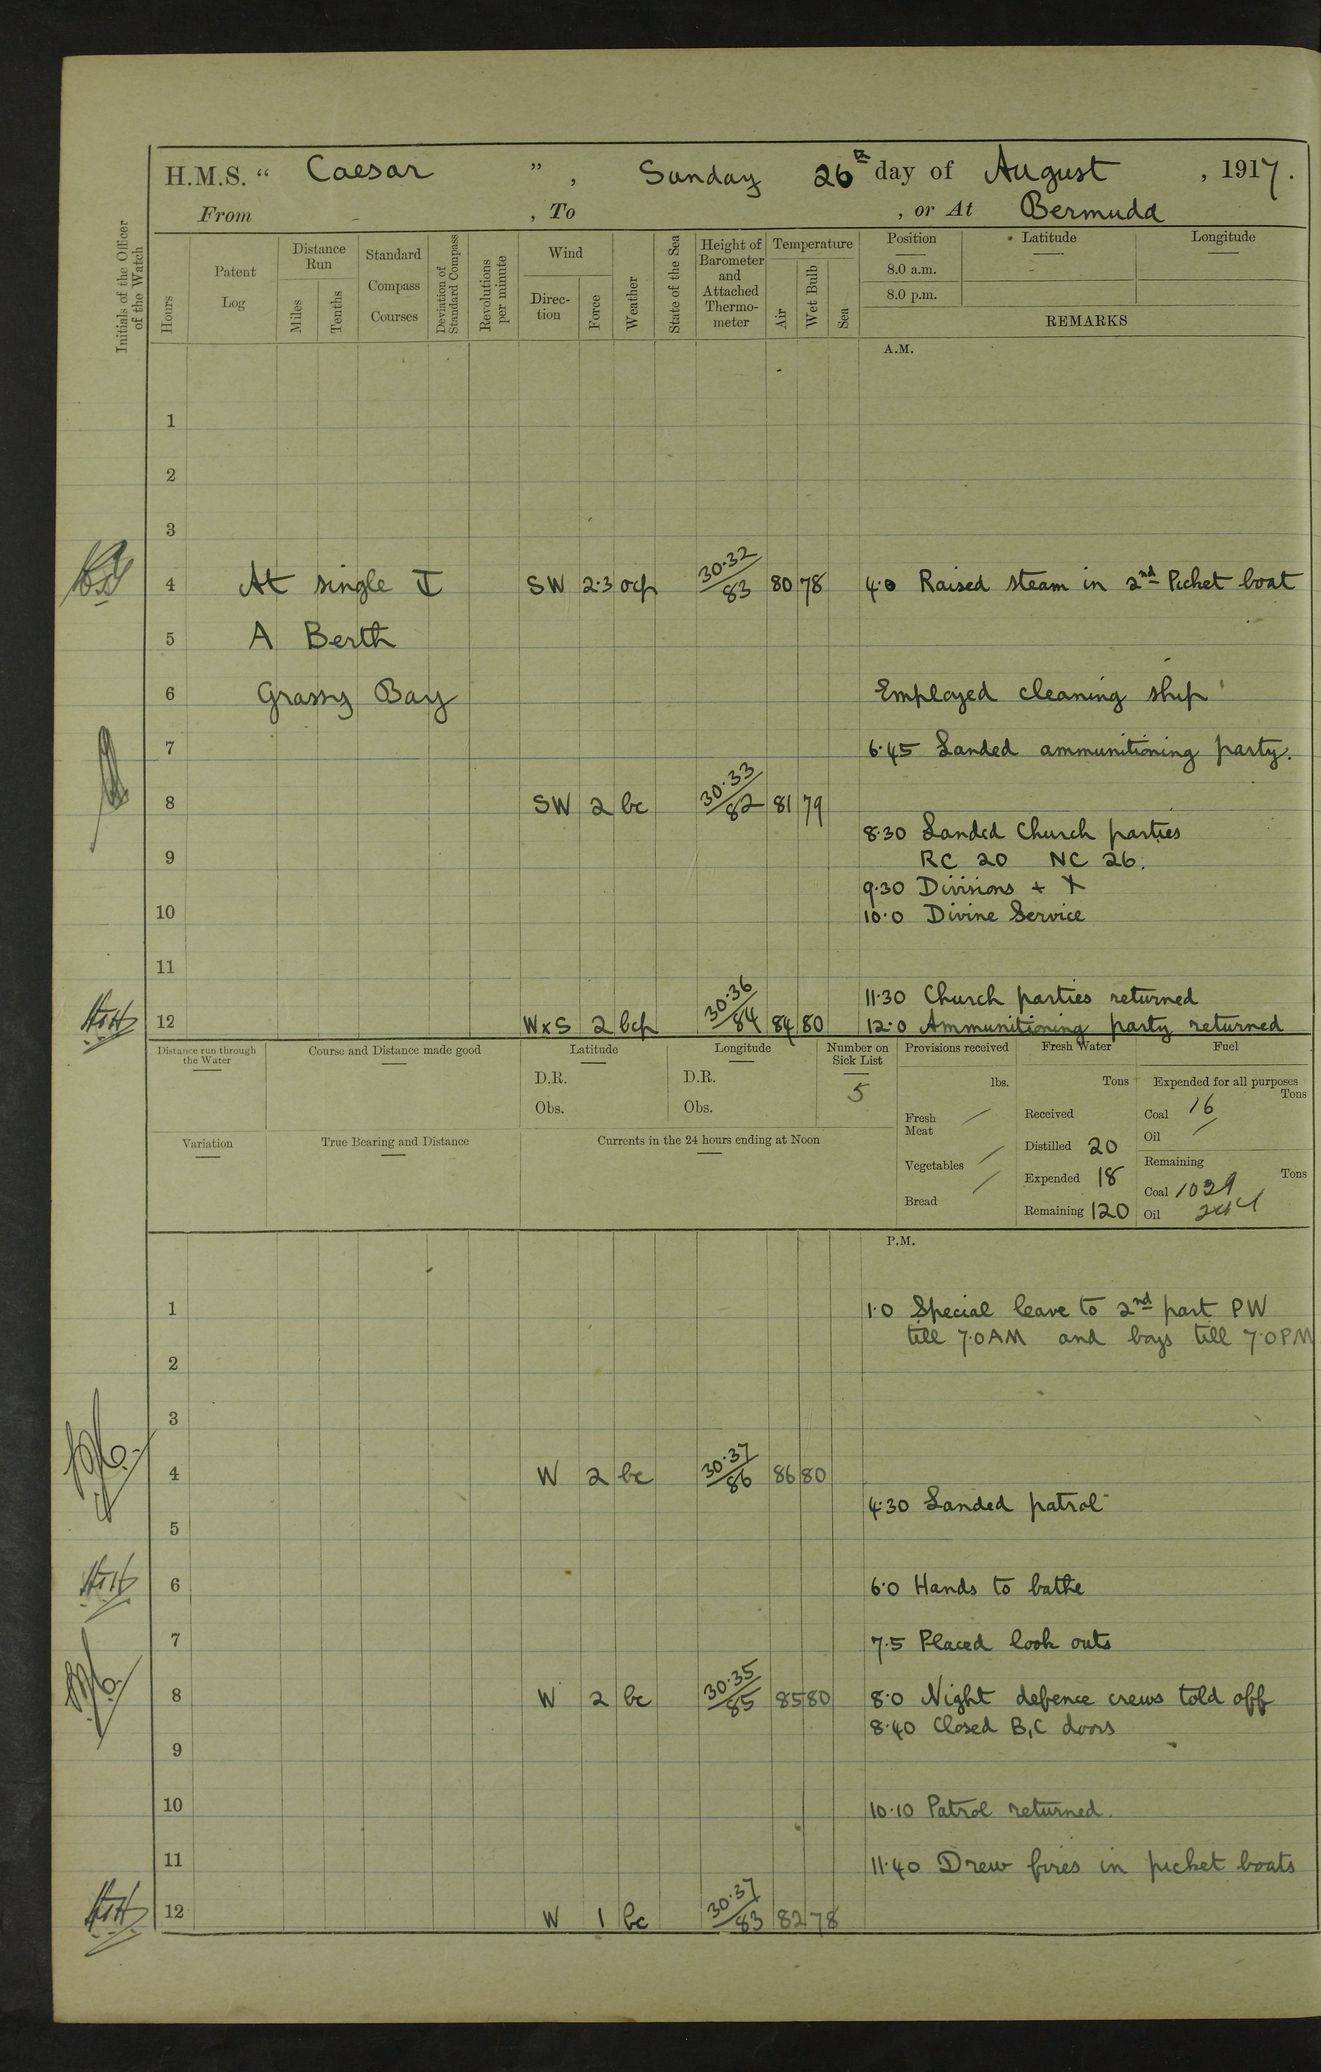 H.M.S. “ Caesar ” , Sunday 26th day of August , 1917.
From - , To , or At Bermuda
Initials of the Officer of the Watch
Hours
Patent Log
Distance Run
Miles
Tenths
Standard Compass Courses
Deviation of Standard Compass
Revolutions per minute
Wind
Direc-tion
Force
Weather
State of the Sea
Height of Barometer and Attached Thermo-meter
Temperature
Air
Wet Bulb
Sea
Position
Latitude
Longitude
8.0 a.m.
8.0 p.m.
REMARKS
A.M.
1
2
3
4 At single SW 2·3 ocp 30·32/83 80 78 4·0 Raised steam in 2nd Picket boat
5 A Berth
6 Grassy Bay Employed cleaning ship
7 6·45 Landed ammunitioning party.
8 SW 2 bc 30·33/82 81 79
8·30 Landed Church parties
9 RC 20 NC 26.
9·30 Divisions + X
10 10·0 Divine Service
11
11·30 Church parties returned
12 WxS 2 bcp 30·36/84 84 80 12·0 Ammunitioning party returned
Distance run through the Water
Course and Distance made good
Latitude
D.R.
Obs.
Longitude
D.R.
Obs.
Number on Sick List
5
Provisions received
lbs.
Fresh Meat /
Vegetables /
Bread /
Fresh Water
Tons
Received
Distilled 20
Expended 18
Remaining 120
Fuel
Expended for all purposes
Tons
Coal 16
Oil /
Remaining
Tons
Coal 1029
Oil 244
Variation
True Bearing and Distance
Currents in the 24 hours ending at Noon
P.M.
1 1·0 Special leave to 2nd part PW
till 7·0AM and boys till 7·0PM
2
3
4 W 2 bc 30·37/86 86 80
4·30 Landed patrol
5
6 6·0 Hands to bathe
7 7·5 Placed look outs
8 W 2 bc 30·35/85 85 80 8·0 Night defence crews told off
8·40 Closed B,C doors
9
10 10·10 Patrol returned.
11 11·40 Drew fires in picket boats
12 W 1 bc 30·37/83 82 78